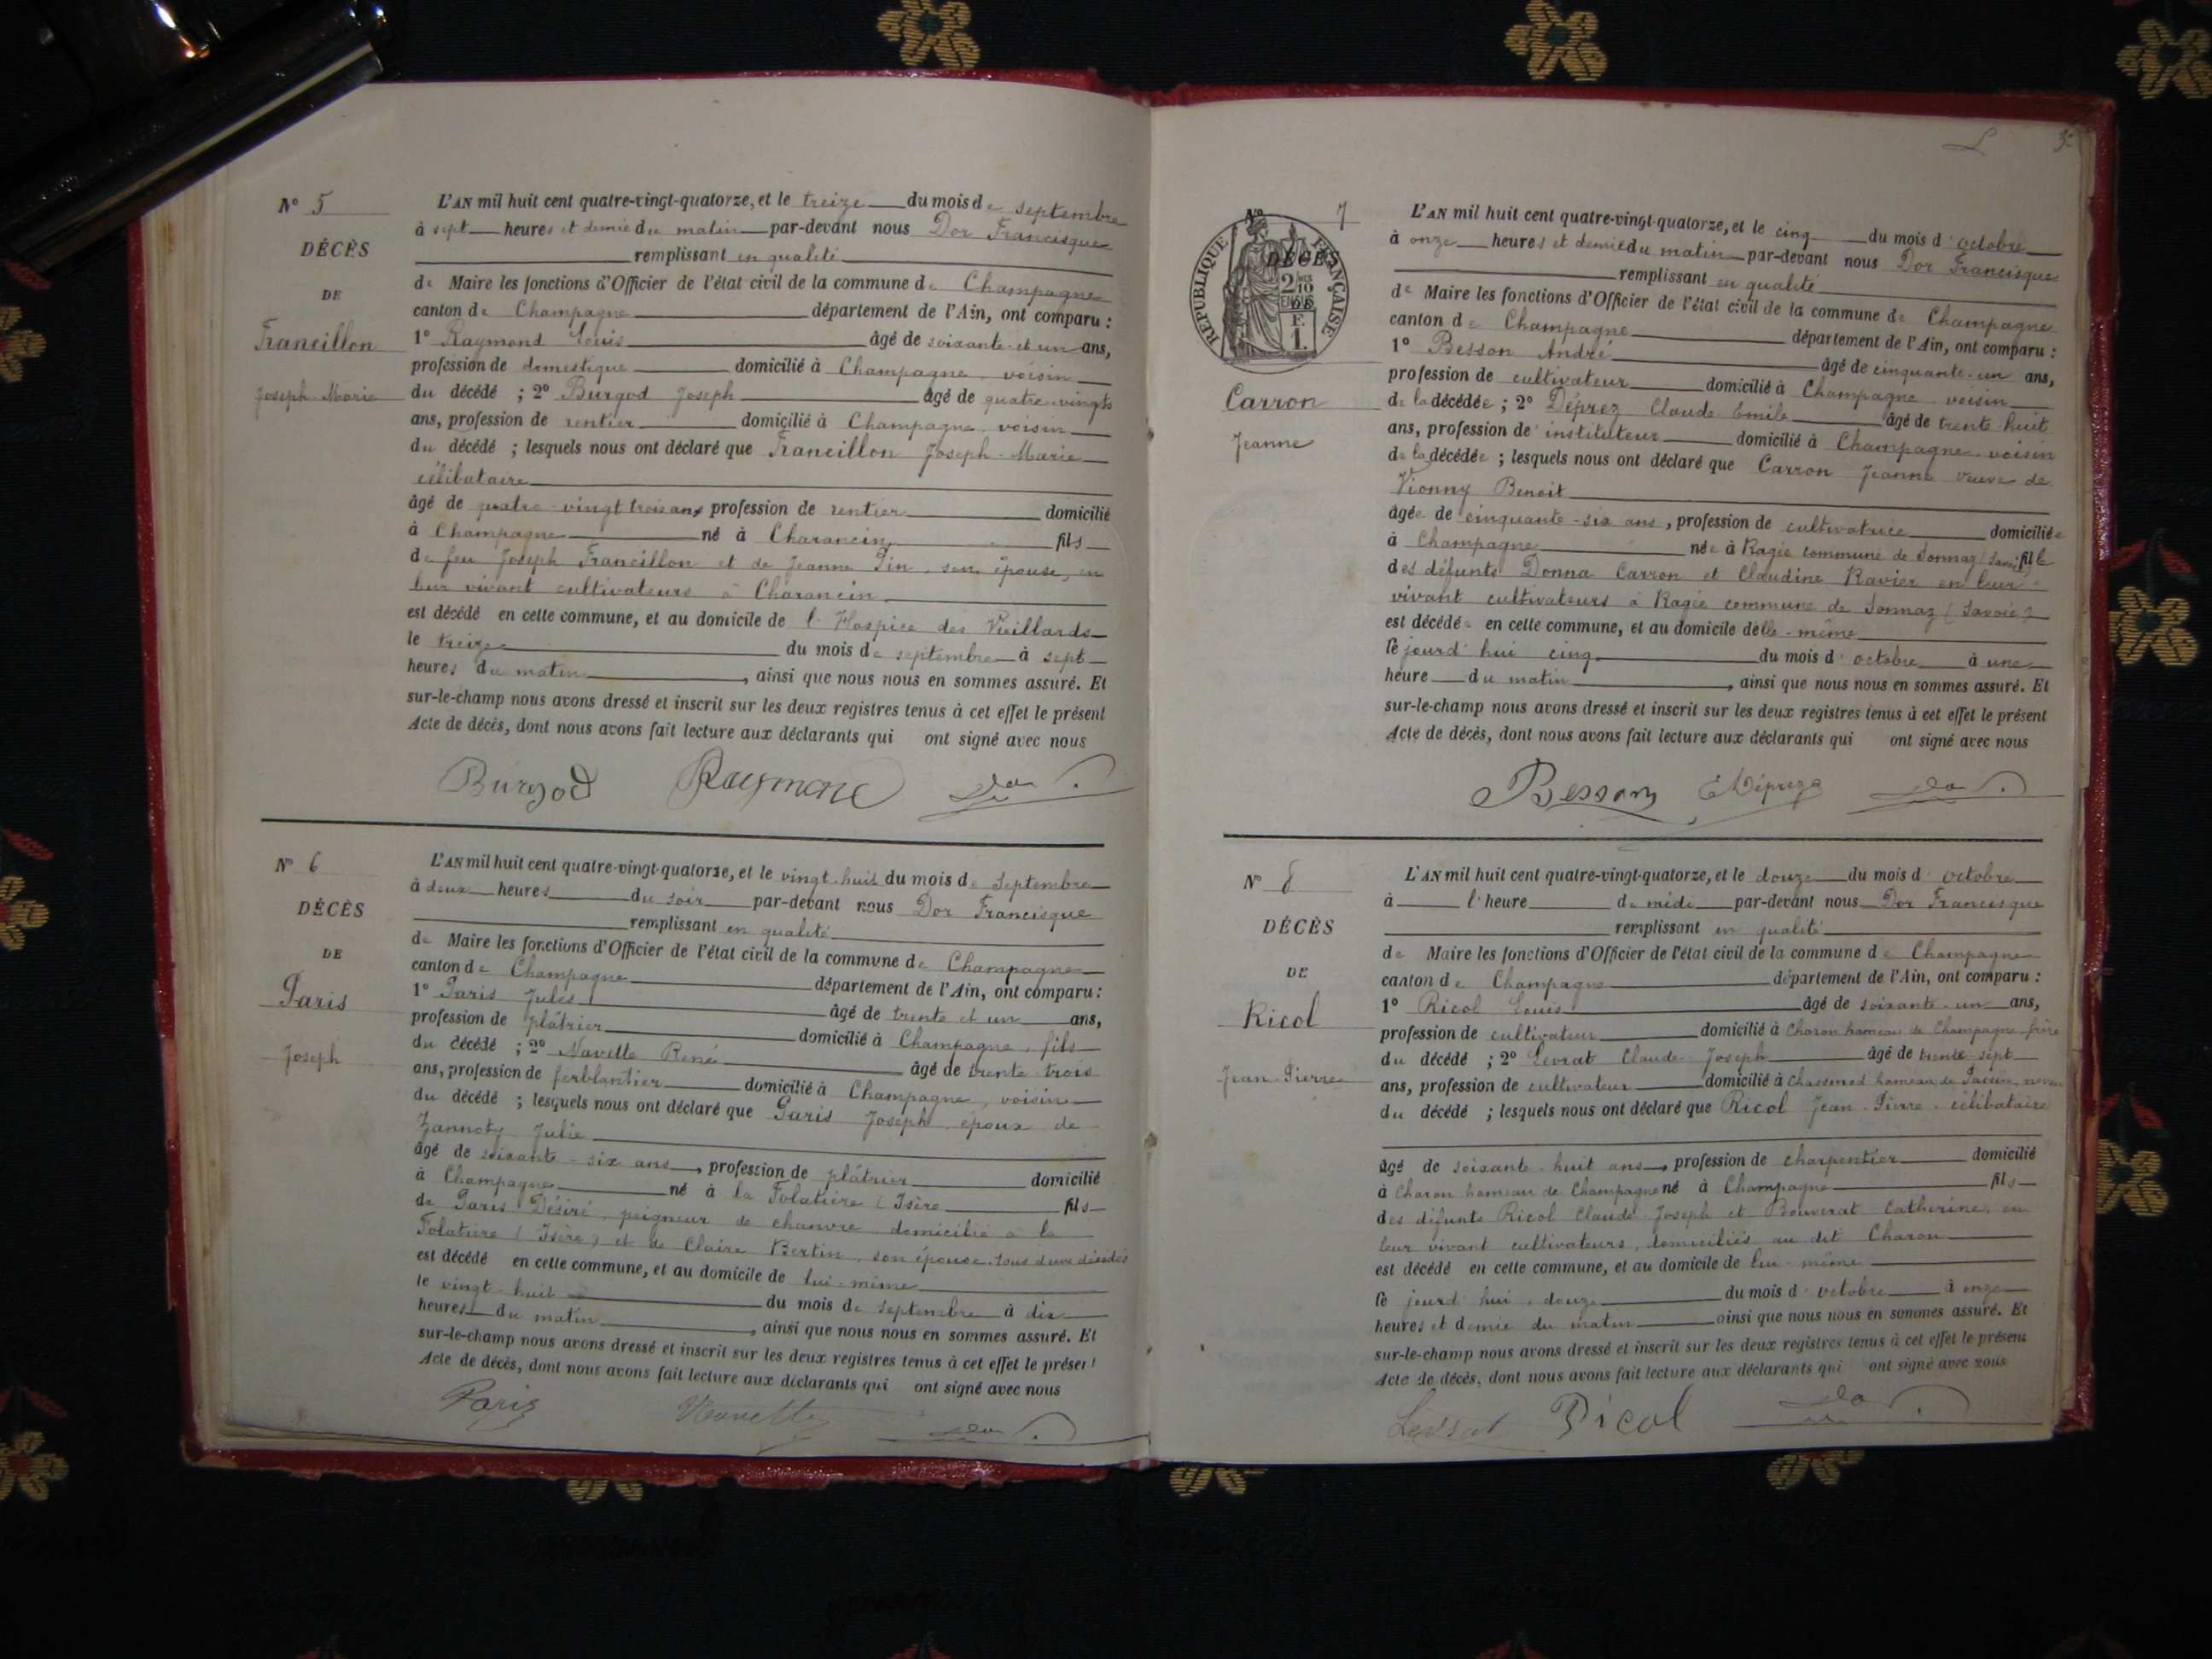 N° 5
DÉCÈS
DE
Francillon
Joseph-Marie
L'AN mil huit cent quatre-vingt-quatorze, et le treize du mois de septembre
à sept heures et demie du matin par-devant nous Dor Francisque
remplissant en qualité
de Maire les fonctions d'Officier de l'état civil de la commune de Champagne
canton de Champagne département de l'Ain, ont comparu :
1° Raymond Louis âgé de soixante-et un ans,
profession de domestique domicilié à Champagne, voisin
du décédé ; 2° Burgod Joseph âgé de quatre-vingts
ans, profession de rentier domicilié à Champagne, voisin
du décédé ; lesquels nous ont déclaré que Francillon Joseph-Marie
célibataire
âgé de quatre-vingt trois ans profession de rentier domicilié
à Champagne né à Charancin fils
de feu Joseph Francillon et de Jeanne Pin, son épouse, en
leur vivant cultivateurs à Charancin
est décédé en cette commune, et au domicile de l'Hospice des Vieillards
le treize du mois de septembre à sept
heures du matin, ainsi que nous nous en sommes assuré. Et
sur-le-champ nous avons dressé et inscrit sur les deux registres tenus à cet effet le présent
Acte de décès, dont nous avons fait lecture aux déclarants qui ont signé avec nous
Burgod Raymond Dor
N° 6
DÉCÈS
DE
Paris
Joseph
L'AN mil huit cent quatre-vingt-quatorze, et le vingt-huit du mois de Septembre
à deux heures du soir par-devant nous Dor Francisque
remplissant en qualité
de Maire les fonctions d'Officier de l'état civil de la commune de Champagne
canton de Champagne département de l'Ain, ont comparu :
1° Paris Jules âgé de trente et un ans,
profession de plâtrier domicilié à Champagne, fils
du décédé ; 2° Navette René âgé de trente-trois
ans, profession de ferblantier domicilié à Champagne, voisin
du décédé ; lesquels nous ont déclaré que Paris Joseph, époux de
Julie
âgé de soixante-six ans, profession de plâtrier domicilié
à Champagne né à la Folatière (Isère fils
de Paris Désiré, peigneur de chanvre domicilié à la
Folatière (Isère) et de Claire Bertin, son épouse, tous deux décédés
est décédé en cette commune, et au domicile de lui-même
le vingt-huit du mois de septembre à dix
heures du matin, ainsi que nous nous en sommes assuré. Et
sur-le-champ nous avons dressé et inscrit sur les deux registres tenus à cet effet le présent
Acte de décès, dont nous avons fait lecture aux déclarants qui ont signé avec nous
Paris Navette Dor
3e
N° 7
DÉCÈS
RÉPUBLIQUE FRANÇAISE
2/10
EN SUS
F.
1.
Carron
Jeanne
L'AN mil huit cent quatre-vingt-quatorze, et le cinq du mois d'octobre
à onze heures et demie du matin par-devant nous Dor Francisque
remplissant en qualité
de Maire les fonctions d'Officier de l'état civil de la commune de Champagne
canton de Champagne département de l'Ain, ont comparu :
1° Besson André âgé de cinquante-un ans,
profession de cultivateur domicilié à Champagne, voisin
de la décédée ; 2° Déprez Claude-Emile âgé de trente-huit
ans, profession de instituteur domicilié à Champagne, voisin
de la décédée ; lesquels nous ont déclaré que Carron Jeanne veuve de
Vionny Benoit
âgée de cinquante-six ans, profession de cultivatrice domiciliée
à Champagne née à Ragie commune de Sonnaz (Savoie) fille
des défunts Donna Carron et Claudine Ravier en leur
vivant cultivateurs à Ragie commune de Sonnaz (Savoie)
est décédée en cette commune, et au domicile d'elle-même
le jourd'hui cinq du mois d'octobre à une
heure du matin, ainsi que nous nous en sommes assuré. Et
sur-le-champ nous avons dressé et inscrit sur les deux registres tenus à cet effet le présent
Acte de décès, dont nous avons fait lecture aux déclarants qui ont signé avec nous
Besson E Déprez Dor
N° 8
DÉCÈS
DE
Ricol
Jean-Pierre
L'AN mil huit cent quatre-vingt-quatorze, et le douze du mois d'octobre
à l'heure de midi par-devant nous Dor Francisque
remplissant en qualité
de Maire les fonctions d'Officier de l'état civil de la commune de Champagne
canton de Champagne département de l'Ain, ont comparu :
1° Ricol Louis âgé de soixante-un ans,
profession de cultivateur domicilié à Charon hameau de Champagne, frère
du décédé ; 2° Levrat Claude-Joseph âgé de trente-sept
ans, profession de cultivateur domicilié à hameau de Passin, neveu
du décédé ; lesquels nous ont déclaré que Ricol Jean-Pierre célibataire
âgé de soixante-huit ans, profession de charpentier domicilié
à Charon hameau de Champagne né à Champagne fils
des défunts Ricol Claude-Joseph et Bouverat Catherine, en
leur vivant cultivateurs, domiciliés au dit Charon
est décédé en cette commune, et au domicile de lui-même
le jourd'hui, douze du mois d'octobre à onze
heures et demie du matin ainsi que nous nous en sommes assuré. Et
sur-le-champ nous avons dressé et inscrit sur les deux registres tenus à cet effet le présent
Acte de décès, dont nous avons fait lecture aux déclarants qui ont signé avec nous
Levrat Ricol Dor